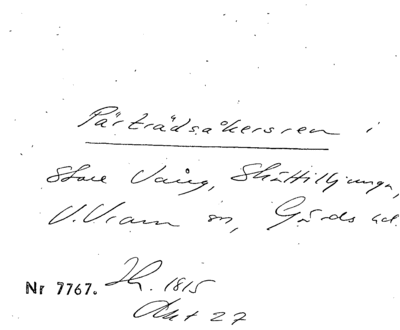 Pärträdsåkersren i
Store Vång, Skättilljunga,
V. Vram sn, Gärds hd.
Nr 7767. Sk. 1815
Akt 27